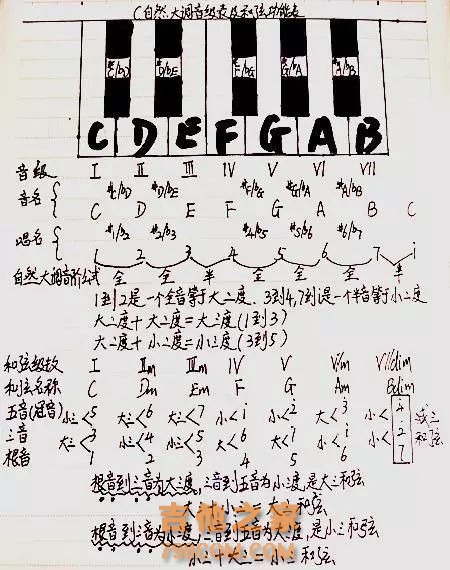 C自然大调音级表及和弦功能表
#C/bD #D/bE #F/bG #G/bA #A/bB
C D E F G A B
音级 I II III IV V VI VII
#C/bD #D/bE #F/bG #G/bA #A/bB
音名 { C D E F G A B C
#1/b2 #2/b3 #4/b5 #5/b6 #6/b7
唱名 { 1 2 3 4 5 6 7 i
自然大调音阶公式 全 全 半 全 全 全 半
1到2是一个全音等于大二度、3到4,7到i是一个半音等于小二度
大二度+大二度=大三度(1到3)
大二度+小二度=小三度(3到5)
和弦级数 I IIm IIIm IV V VIm VIIdim
和弦名称 C Dm Em F G Am Bdim
五音(冠音) 小三<5 大三<6 大三<7 小<i 小<2 大<3 小<4 减三
三音 大三<3 小三<4 小三<5 大<6 大<7 小<i 小<2 和弦
根音 1 2 3 4 5 6 7
根音到三音为大三度,三音到五音为小三度,是大三和弦
大三+小三=大三和弦
根音到三音为小三度,三音到五音为大三度,是小三和弦
吉他之家
798COM.COM
小三+大三=小三和弦